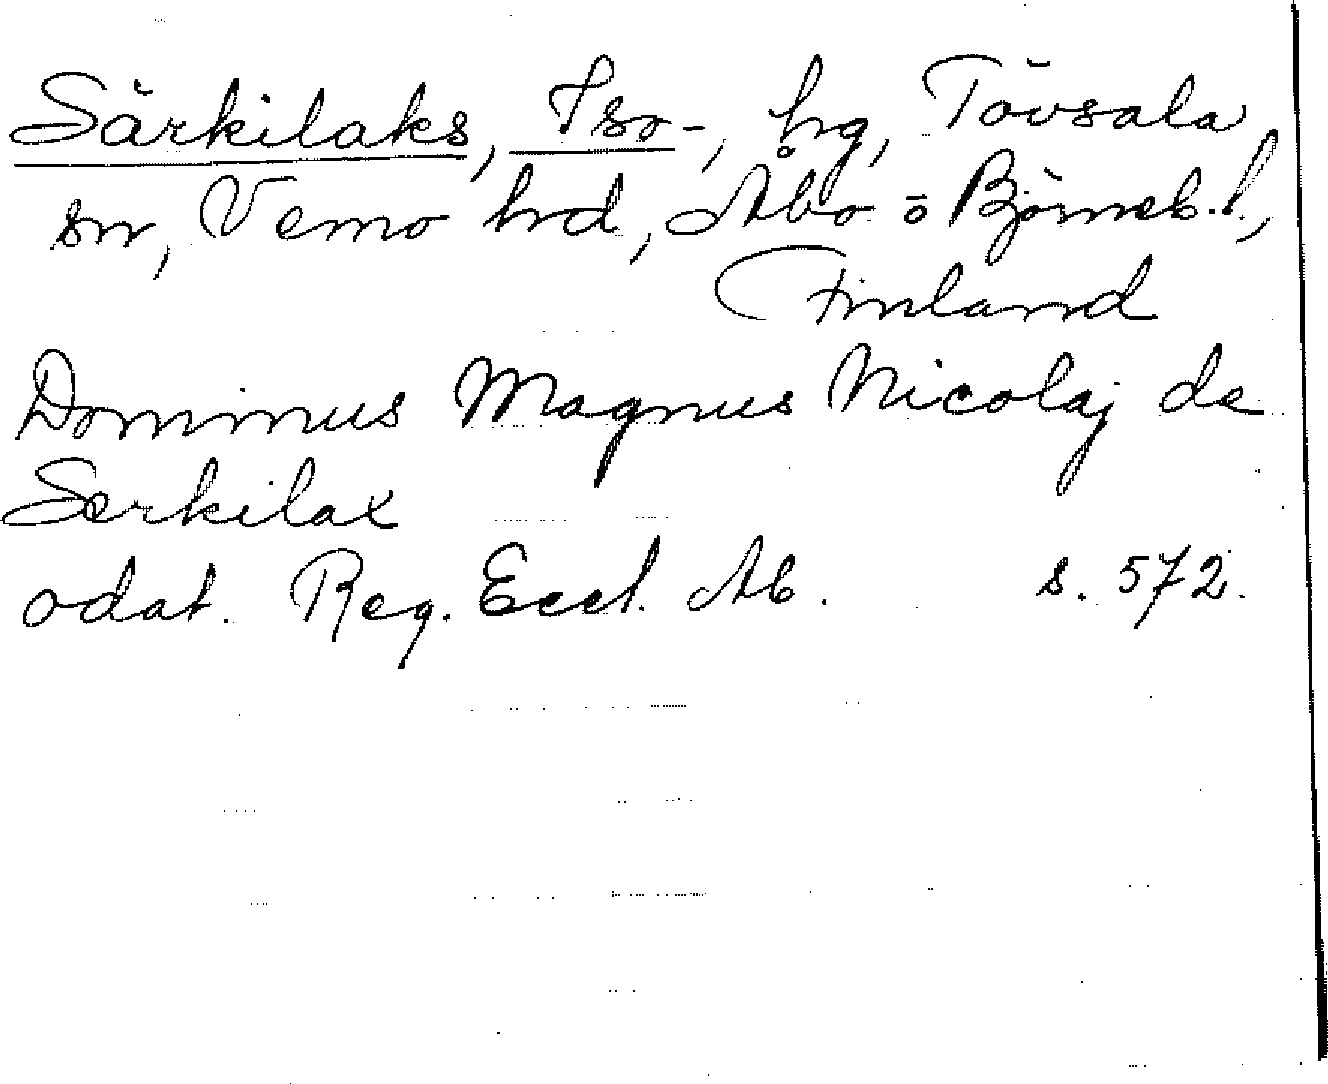 Särkilaks, Iso-, hg, Tövsala
sn, Vemo hrd, Åbo o Björneb. l.,
Finland
Dominus Magnus Nicolaj de
Serkilax
odat. Reg. Eccl. Ab. s. 572.